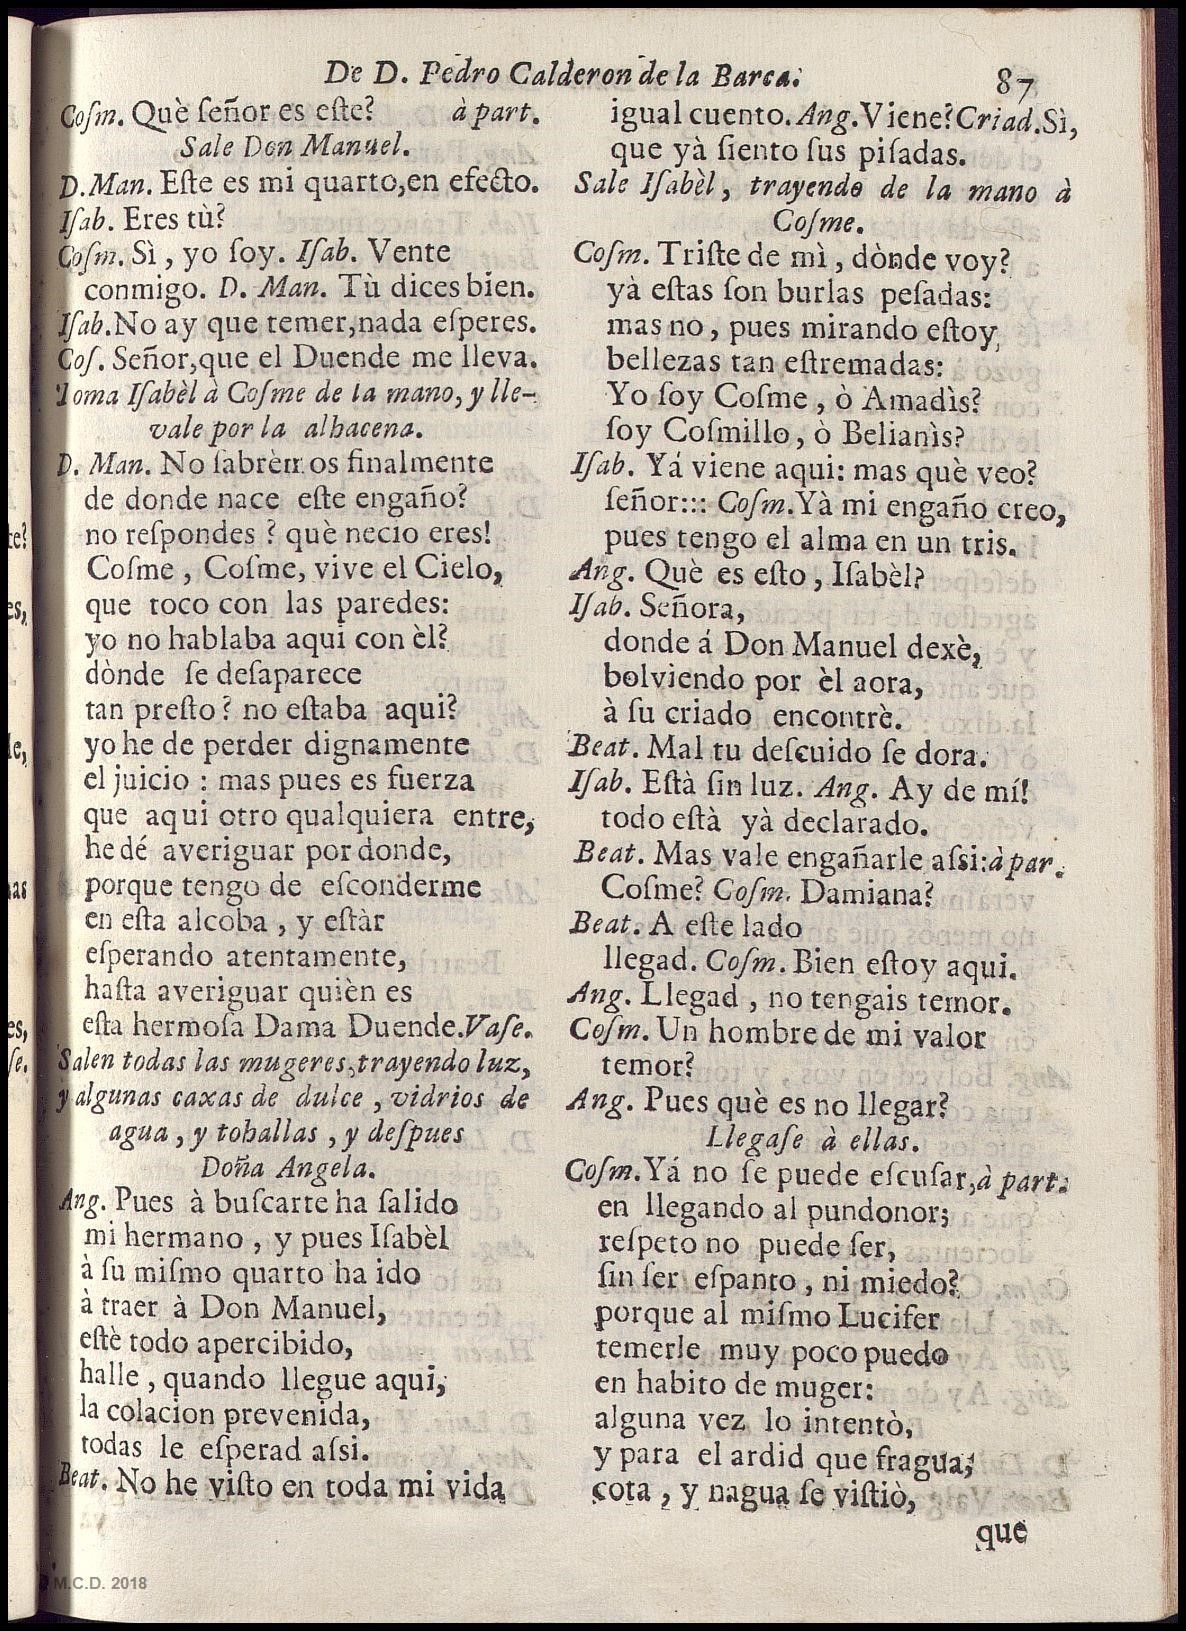 De D. Pedro Calderon de la Barca. 87
Coſm. Què ſeñor es eſte? à part.
Sale Don Manuel.
D. Man. Eſte es mi quarto, en efecto.
Iſab. Eres tù?
Coſm. Sì, yo ſoy. Iſab. Vente
conmigo. D. Man. Tù dices bien.
Iſab. No ay que temer, nada eſperes.
Coſ. Señor, que el Duende me lleva.
Toma Iſabèl à Coſme de la mano, y lle-
vale por la alhacena.
D. Man. No ſabrèmos finalmente
de donde nace eſte engaño?
no reſpondes? què necio eres!
Coſme, Coſme, vive el Cielo,
que toco con las paredes:
yo no hablaba aqui con èl?
dònde ſe deſaparece
tan preſto? no eſtaba aqui?
yo he de perder dignamente
el juicio: mas pues es fuerza
que aqui otro qualquiera entre,
he dé averiguar por donde,
porque tengo de eſconderme
en eſta alcoba, y eſtàr
eſperando atentamente,
haſta averiguar quièn es
eſta hermoſa Dama Duende. Vaſe.
Salen todas las mugeres, trayendo luz,
y algunas caxas de dulce, vidrios de
agua, y tohallas, y deſpues
Doña Angela.
Ang. Pues à buſcarte ha ſalido
mi hermano, y pues Iſabèl
à ſu miſmo quarto ha ido
à traer à Don Manuel,
eſtè todo apercibido,
halle, quando llegue aqui,
la colacion prevenida,
todas le eſperad aſsi.
Beat. No he viſto en toda mi vida
igual cuento. Ang. Viene? Criad. Sì,
que yà ſiento ſus piſadas.
Sale Iſabèl, trayendo de la mano à
Coſme.
Coſm. Triſte de mì, dònde voy?
yà eſtas ſon burlas peſadas:
mas no, pues mirando eſtoy
bellezas tan eſtremadas:
Yo ſoy Coſme, ò Amadìs?
ſoy Coſmillo, ò Belianìs?
Iſab. Yá viene aqui: mas què veo?
ſeñor::: Coſm. Yà mi engaño creo,
pues tengo el alma en un tris.
Ang. Què es eſto, Iſabèl?
Iſab. Señora,
donde á Don Manuel dexè,
bolviendo por èl aora,
à ſu criado encontrè.
Beat. Mal tu deſcuido ſe dora.
Iſab. Eſtà ſin luz. Ang. Ay de mí!
todo eſtà yà declarado.
Beat. Mas vale engañarle aſsi: à par.
Coſme? Coſm. Damiana?
Beat. A eſte lado
llegad. Coſm. Bien eſtoy aqui.
Ang. Llegad, no tengais temor.
Coſm. Un hombre de mi valor
temor?
Ang. Pues què es no llegar?
Llegaſe à ellas.
Coſm. Yá no ſe puede eſcuſar, à part.
en llegando al pundonor;
reſpeto no puede ſer,
ſin ſer eſpanto, ni miedo?
porque al miſmo Lucifer
temerle muy poco puedo
en habito de muger:
alguna vez lo intentò,
y para el ardid que fragua,
cota, y nagua ſe viſtiò,
que
M.C.D. 2018